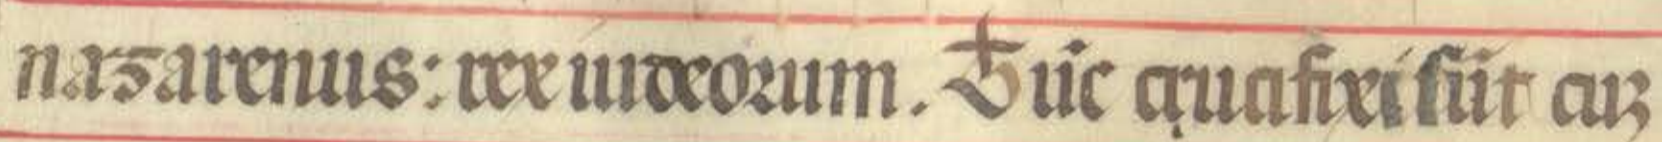 nazarenus: rex iudeorum. Tūc crucifixi sūt cuȝ